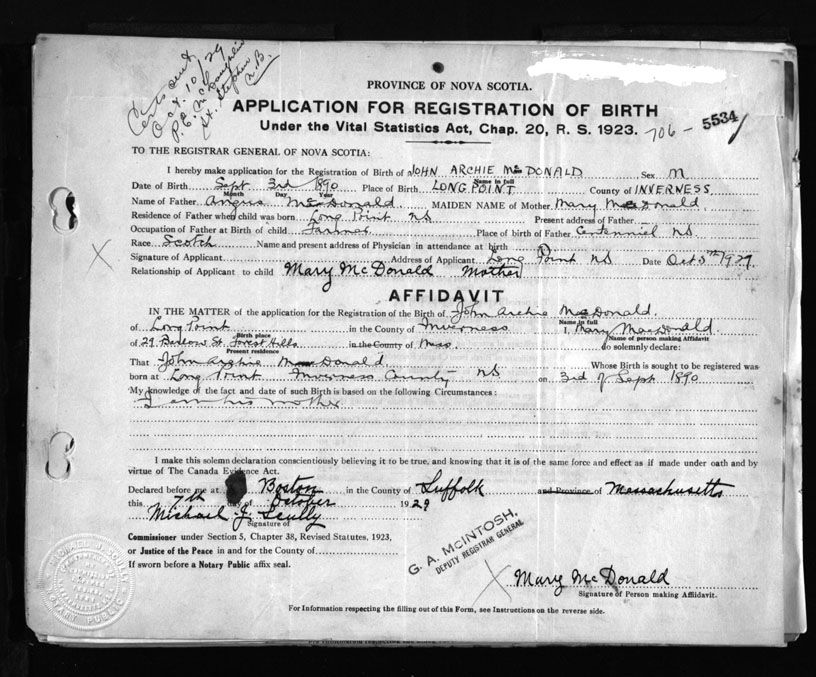 Certs sent
Oct. 10/29
P.E. McLaughlin
St. Stephen
N.B.
PROVINCE OF NOVA SCOTIA.
APPLICATION FOR REGISTRATION OF BIRTH
Under the Vital Statistics Act, Chap. 20, R. S. 1923.
706 - 5534
TO THE REGISTRAR GENERAL OF NOVA SCOTIA:
I hereby make application for the Registration of Birth of JOHN ARCHIE McDONALD Sex M
Name in full
Date of Birth Sept 3rd 1890 Place of Birth LONG POINT County of INVERNESS
Month Day Year
Name of Father Angus McDonald MAIDEN NAME of Mother Mary McDonald.
Residence of Father when child was born Long Point NS Present address of Father
Occupation of Father at Birth of child Farmer Place of birth of Father Centennial NS.
Race Scotch Name and present address of Physician in attendance at birth
Signature of Applicant Address of Applicant Long Point NS Date Oct 5th 1929.
Relationship of Applicant to child Mary McDonald Mother
AFFIDAVIT
IN THE MATTER of the application for the Registration of the Birth of John Archie McDonald.
Name in full
of Long Point in the County of Inverness I, Mary MacDonald.
Birth place Name of person making Affidavit
of 29 St. Forest Hills in the County of Mass. do solemnly declare:
Present residence
That John Archie McDonald Whose Birth is sought to be registered was
born at Long Point Inverness County NS on 3rd of Sept. 1890
My knowledge of the fact and date of such Birth is based on the following Circumstances:
I am his mother
I make this solemn declaration conscientiously believing it to be true, and knowing that it is of the same force and effect as if made under oath and by
virtue of The Canada Evidence Act.
Declared before me at Boston in the County of Suffolk and Province of Massachusetts
this 7th day of October 1929
Michael J. Scully
Signature of
Commissioner under Section 5, Chapter 38, Revised Statutes, 1923,
or Justice of the Peace in and for the County of
If sworn before a Notary Public affix seal.
G. A. McINTOSH,
DEPUTY REGISTRAR GENERAL
Mary McDonald
Signature of Person making Affidavit.
For Information respecting the filling out of this Form, see Instructions on the reverse side.
MICHAEL J. SCULLY
NOTARY PUBLIC